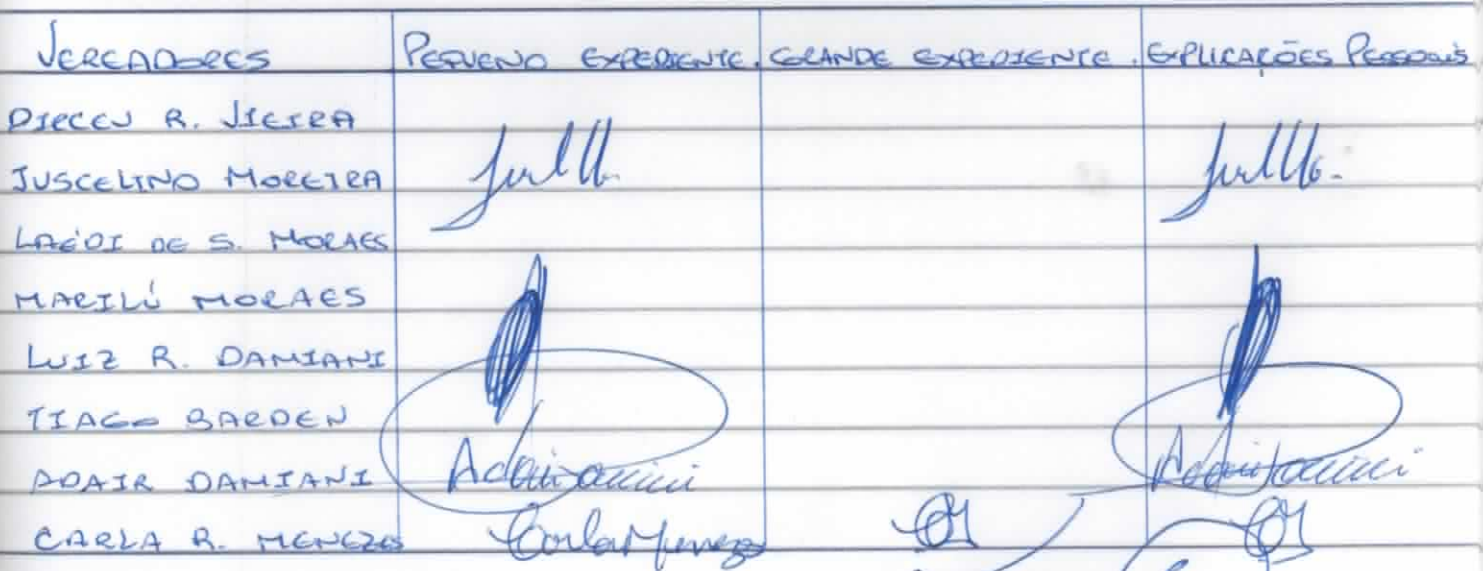 VEREADORES PEQUENO EXPEDIENTE. GRANDE EXPEDIENTE. EXPLICAÇÕES PESSOAIS
DIRCEU R. VIEIRA
JUSCELINO MOREIRA
LAÉDI DE S. MORAES
MARILÚ MORAES
LUIZ R. DAMIANI
TIAGO BARDEN
ADAIR DAMIANI
CARLA R. MENEZES Carla Menezes